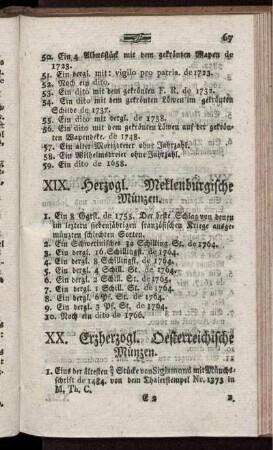 67
50. Ein 4 Albusstück mit dem gekrönten Wapen de
1723.
51. Ein dergl. mit: vigilo pro patria. de 1723.
52. Noch ein dito.
53. Ein dito mit dem gekrönten F. R. de 1732.
54. Ein dito mit dem gekrönten Löwen im gekrönten
Schilde de 1737.
55. Ein dito de
56. Ein dito mit dem gekrönten Löwen auf der gekrön-
ten Wapendeke. de 1748.
57. Ein alter Morizdreier ohne Jahrzahl.
58. Ein Wilhelmsdreier ohne Jahrzahl.
59. Ein dito de 1658.
XIX. Herzogl. Meklenburgische
Münzen.
1. Ein 8 Ggrst. de 1755. Der beste Schlag von denen
im leztern siebenjährigen französischen Kriege ausge-
münzten schlechten Sorten.
2. Ein Schwerinisches 32 Schilling. St. de 1764.
3. Ein vergl. 16 Schillingst. de 1764.
4. Ein vergl. 8 Schillingst. de 1764.
5. Ein vergl. 4 Schill. St. de 1764.
6. Ein vergl. 2 Schill. St. de
7. Ein vergl. 1 Schill. St. de 1764.
8. Ein vergl. 6 Pf. St. de
9. Ein vergl. 3 Pf. St. de 1764.
10. Noch ein dito de 1766.
XX. Erzherzogl. Oesterreichische
Münzen.
1. Eins der ältesten Stücke von Sigismund mit Münchs-
schrift de 1484. von dem Thalerstempel Nr. 1373 in
M. Th. C.
E 2 2.